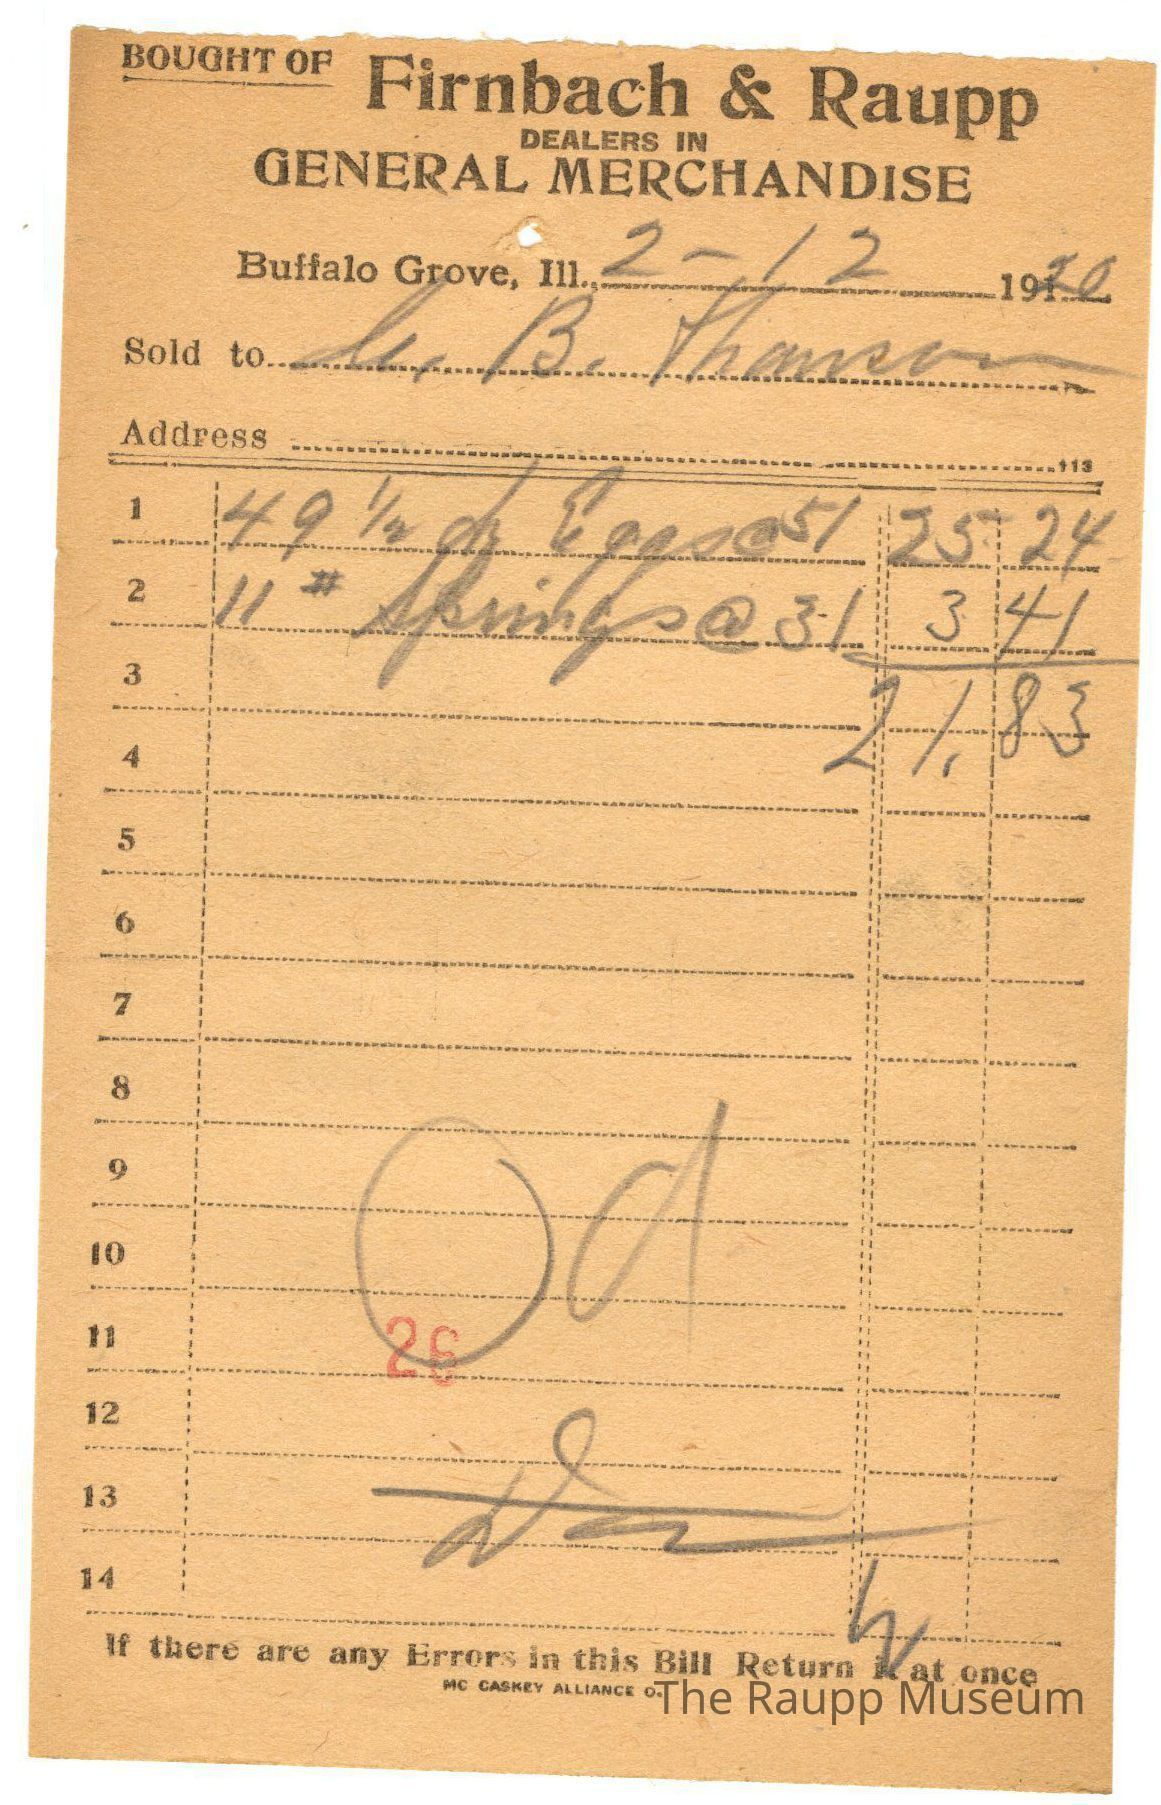 BOUGHT OF Firnbach & Raupp
DEALERS IN
GENERAL MERCHANDISE
Buffalo Grove, Ill. 2-12 1920
Sold to B. Thanson
Address
113
1 49 1/2 dz Eggs @ 51 25 24
2 11 # Springs @ 31 3 41
3 21.83
4
5
6
7
8
9
10
11 26
12
13
14
If there are any Errors in this Bill Return it at once
MC CASKEY ALLIANCE O.
The Raupp Museum